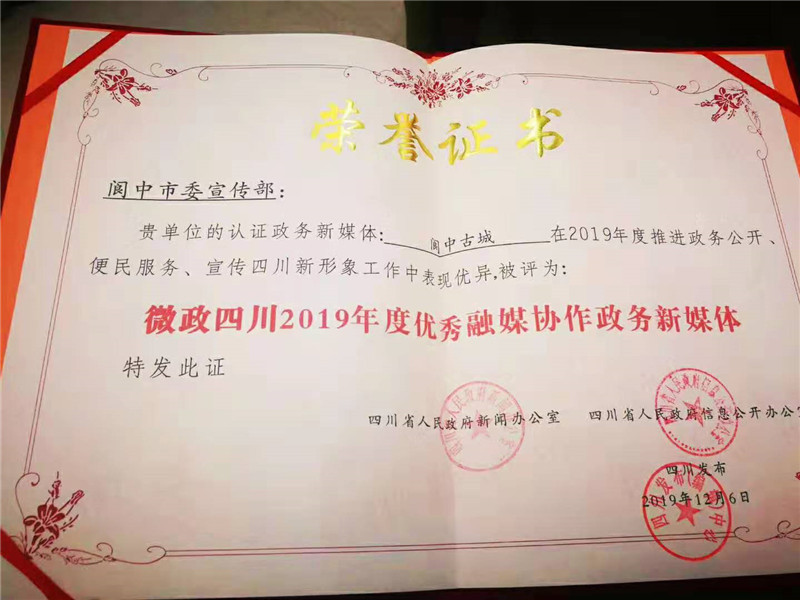 荣誉证书
阆中市委宣传部：
贵单位的认证政务新媒体：阆中古城在2019年度推进政务公开、
便民服务、宣传四川新形象工作中表现优异，被评为：
微政四川2019年度优秀融媒协作政务新媒体
特发此证
四川省人民政府新闻办公室 四川省人民政府信息公开办公室
四川发布
2019年12月6日